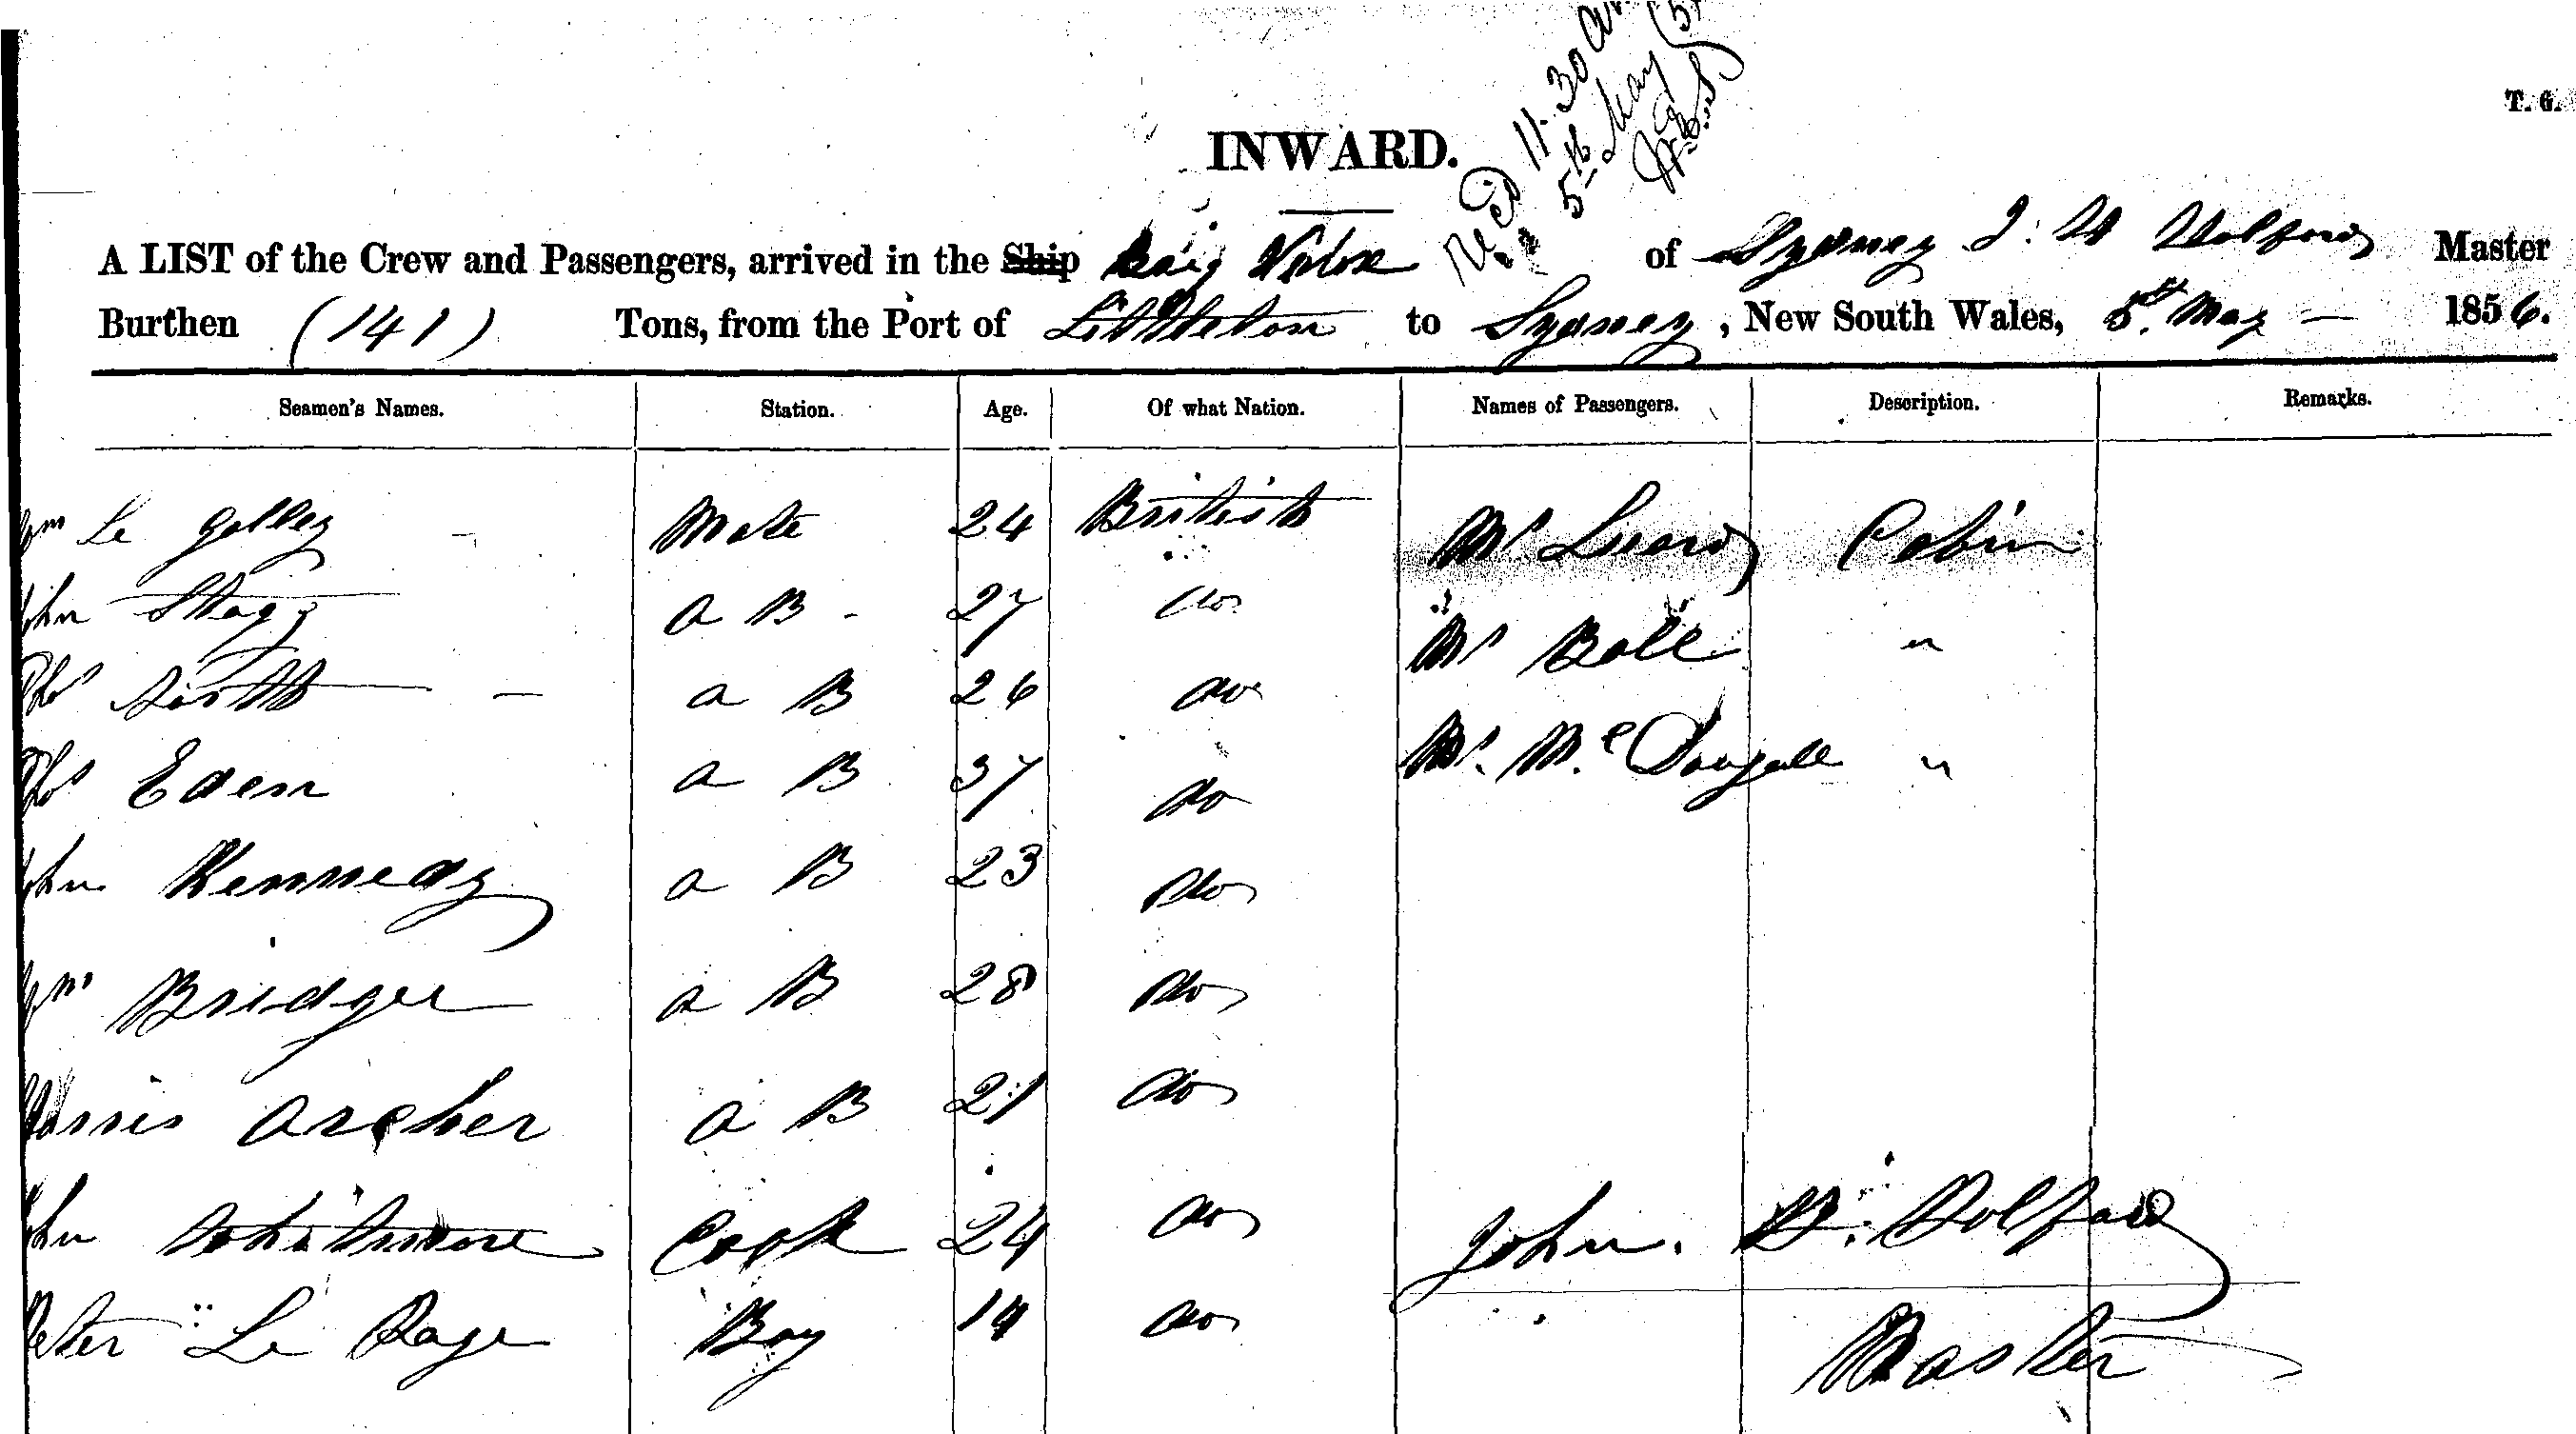 T. G.
Recd 11.30 am
5 May
INWARD.
A LIST of the Crew and Passengers, arrived in the Ship Brig of Sydney J. W Master
Burthen (141) Tons, from the Port of Littleton to Sydney, New South Wales, 5th May 1856.
Seamen's Names. Station. Age. Of what Nation. Names of Passengers. Description. Remarks.
Wm Le Galley Mate 24 British Mr Cabin
John Stagg a B 27 do Mr Ball "
Thos a B 26 do
Thos Eden a B 37 do Mr. McDougall "
John Kennedy a B 23 do
Wm Bridger a B 28 do
Archer a B 21 do
John Cook 24 do John.
Peter Le Page Boy 19 do Master